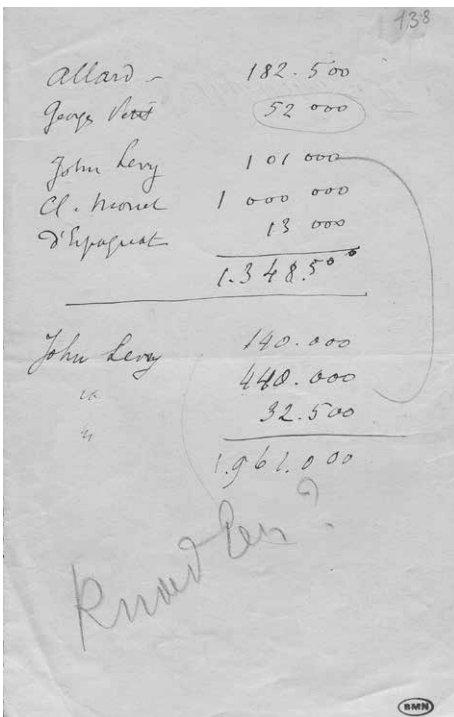 138
Allard - 182.500
Georges Petit 52 000
John Levy 101 000
Cl. Monet 1 000 000
D'Espagnat 13 000
1.348.500
John Levy 140.000
440.000
32.500
1.961.000
Knoedler ?
BMN